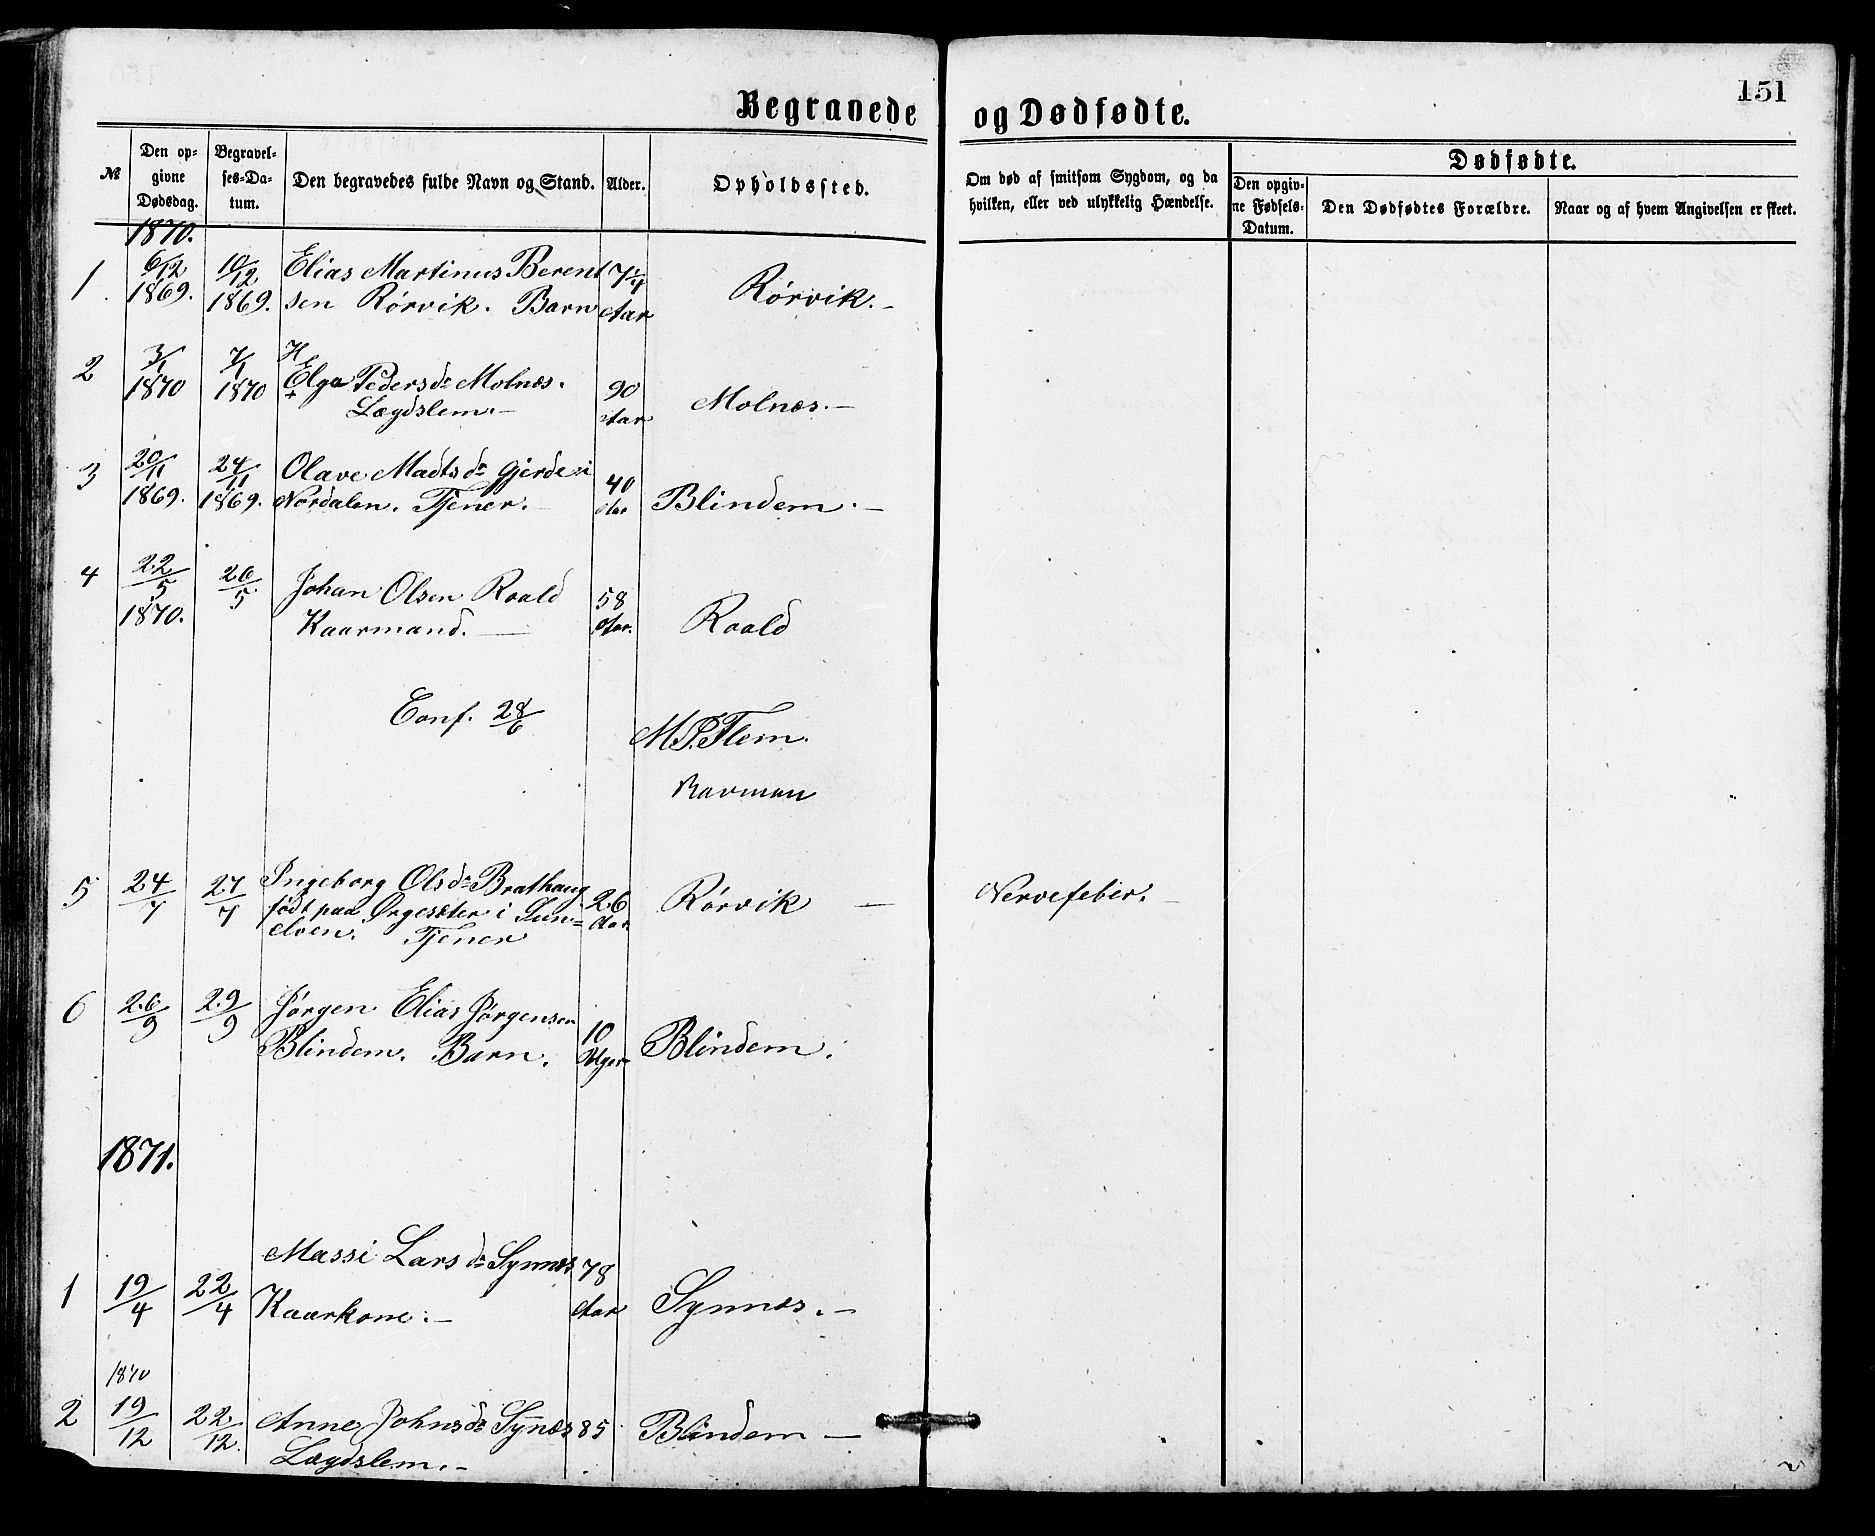 151
Begravede og Dødfødte.
№
Den op-
givne
Dødsdag.
Begravel-
ses-Da-
tum.
Den begravedes fulde Navn og Stand.
Alder.
Opholdssted.
Om død af smitsom Sygdom, og da
hvilken, eller ved ulykkelig Hændelse.
Dødfødte.
Den opgiv-
ne Fødsels-
Datum.
Den Dødfødtes Forældre.
Naar og af hvem Angivelsen er skeet.
1870.
1. 6/12 1869. 10/12 1869. Elias Martinus Berent
sen Rørvik. Barn Aar Rørvik.-
2 3/1 1870 7/1 1870 H
Elga Pedersdr Molnæs. 90
Lægdslem.- Aar Molnæs.-
3 20/11 1869. 24/11 1869. Olave Madtsdr Gjerde i 40
Nordalen. Tjener.- Aar Blindem.-
4 22/5 1870. 26/5 Johan Olsen Roald 58
Kaarmand.- Aar. Roald
Conf. 28/6 M.P. Flem.
5 24/7 27/7 Ingeborg Olsdr Brathaug
født paa Ørgesæter i Sun= 26 Rørvik - Nervefeber.-
elven. Tjener Aar
6 26/9 29/9 Jørgen Elias Jørgensen 10
Blindem. Barn. Blindem.
1871.
1 19/4 22/4 Massi Larsdr Synnæs 78
Kaarkone.- Aar Synnæs.-
1870
2 19/12 22/12. Anne Johnsdr Synæs 85 Blindem -
Lægdslem.-